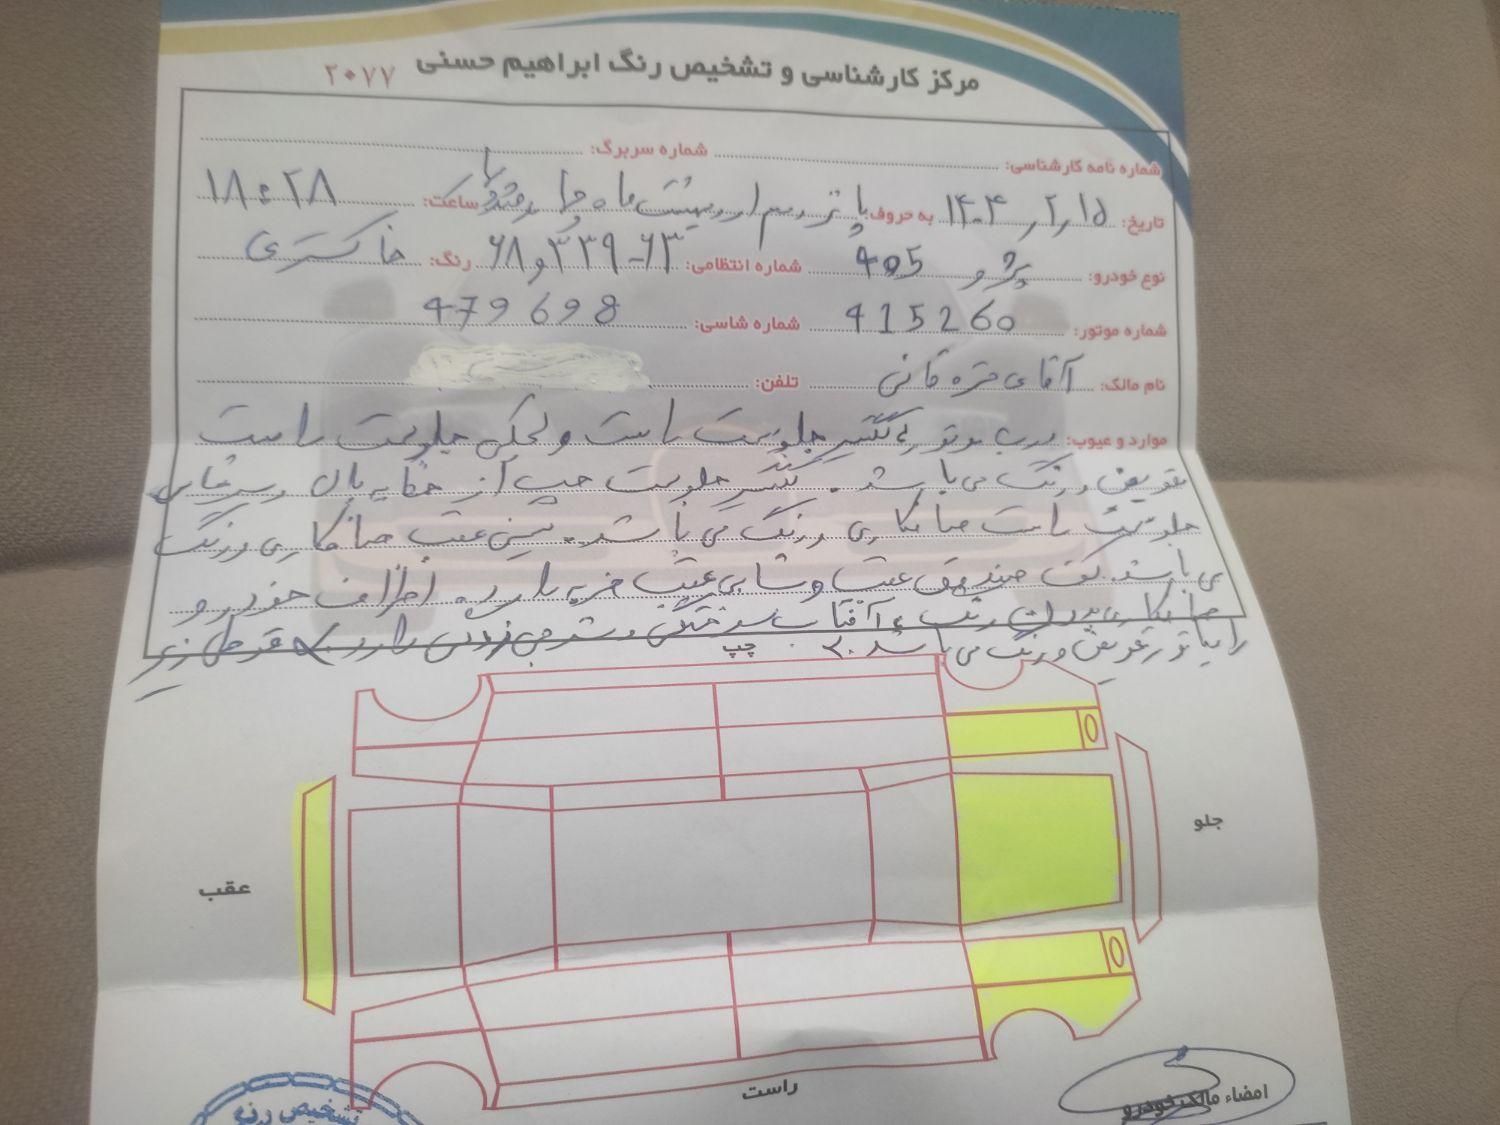 مرکز کارشناسی و تشخیص رنگ ابراهیم حسنی ۲۰۷۷
شماره نامه کارشناسی: شماره سربرگ:
تاریخ: ۱۴۰۴٫۲٫۱۵ به حروف: پانزدهم اردیبهشت ماه ساعت: ۱۸:۲۸
نوع خودرو: پژو 405 شماره انتظامی: ۶۳-۳۳۹و۶۸ رنگ: خاکستری
شماره موتور: 415260 شماره شاسی: 479698
نام مالک: آقای قره قانی تلفن:
موارد و عیوب: درب موتور گلگیر جلو سمت راست و لچکی جلو سمت راست
تعویض و رنگ می باشد. گلگیر جلو سمت چپ از بال و سرشاسی
جلو سمت راست صافکاری و رنگ می باشد. سینی عقب صافکاری و رنگ
می باشد. کف صندوق عقب و شاسی عقب ضربه دارد. اطراف خودرو
صافکاری بدون رنگ آفتاب سوختگی و دارد قوطی زیر
رادیاتور تعویض و رنگ می باشد.
چپ
جلو
عقب
راست
امضاء مالک خودرو
تشخیص رنگ